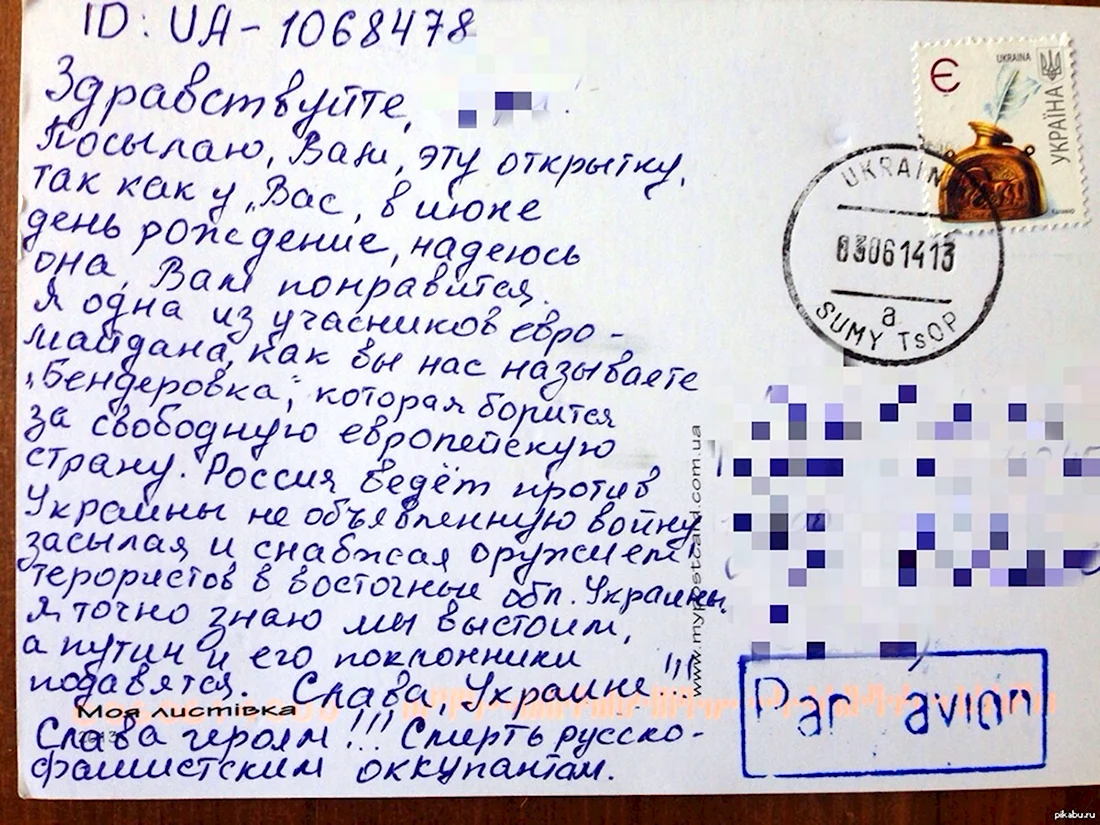 ID: UA-1068478
Здравствуйте,
Посылаю, Вам, эту открытку,
так как у, Вас, в июне
день рождение, надеюсь
она, Вам понравится.
Я одна из учасников евро-
майдана, как вы нас называете
"Бендеровка", которая борится
за свободную европейскую
страну. Россия ведёт против
Украины не объявленную войну
засылая и снабжая оружием
терористов в восточные обл. Украины.
Я точно знаю мы выстоим,
а путин и его поклонники
подавятся. Слава, Украине!!!
Слава героям!!! Смерть русско-
фашистским оккупантам.
Моя листівка
www.mypostcard.com.ua
Є
UKRAINA
УКРАЇНА
UKRAINE
03061413
a
SUMY TsOP
Par avion
pikabu.ru